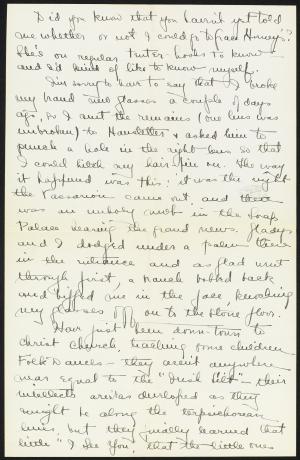 Did you know that you haven't yet told
me whether or not I could go to Grace Honey's?
She's on regular tenter hooks to know –
and I'd kinda of like to know myself.
I'm sorry to have to say that I broke
my brand new glasses a couple of days
ago, so I sent the remains (one lens was
unbroken) to Hausletter & asked him to
punch a hole in the right lens so that
I could hitch my hair-pin on. The way
it happened was this: it was the night
the Vassarion came out, and there
was an unholy mob in the Soap
Palace hearing the grand news. Gladys
and I dodged under a palm there
in the entrance and as Glad went
through first, a branch bobbed back
and biffed me in the face, knocking
my glasses off on to the stone floor.
Have just been down-town to
Christ Church, teaching some children
Folk Dances – they aren't anywhere
near equal to the "Irish Lilt" – their
intellects aren't as developed as they
might be along the terpsichorean
lines, but they finally learned that
little "I See You," that the little ones